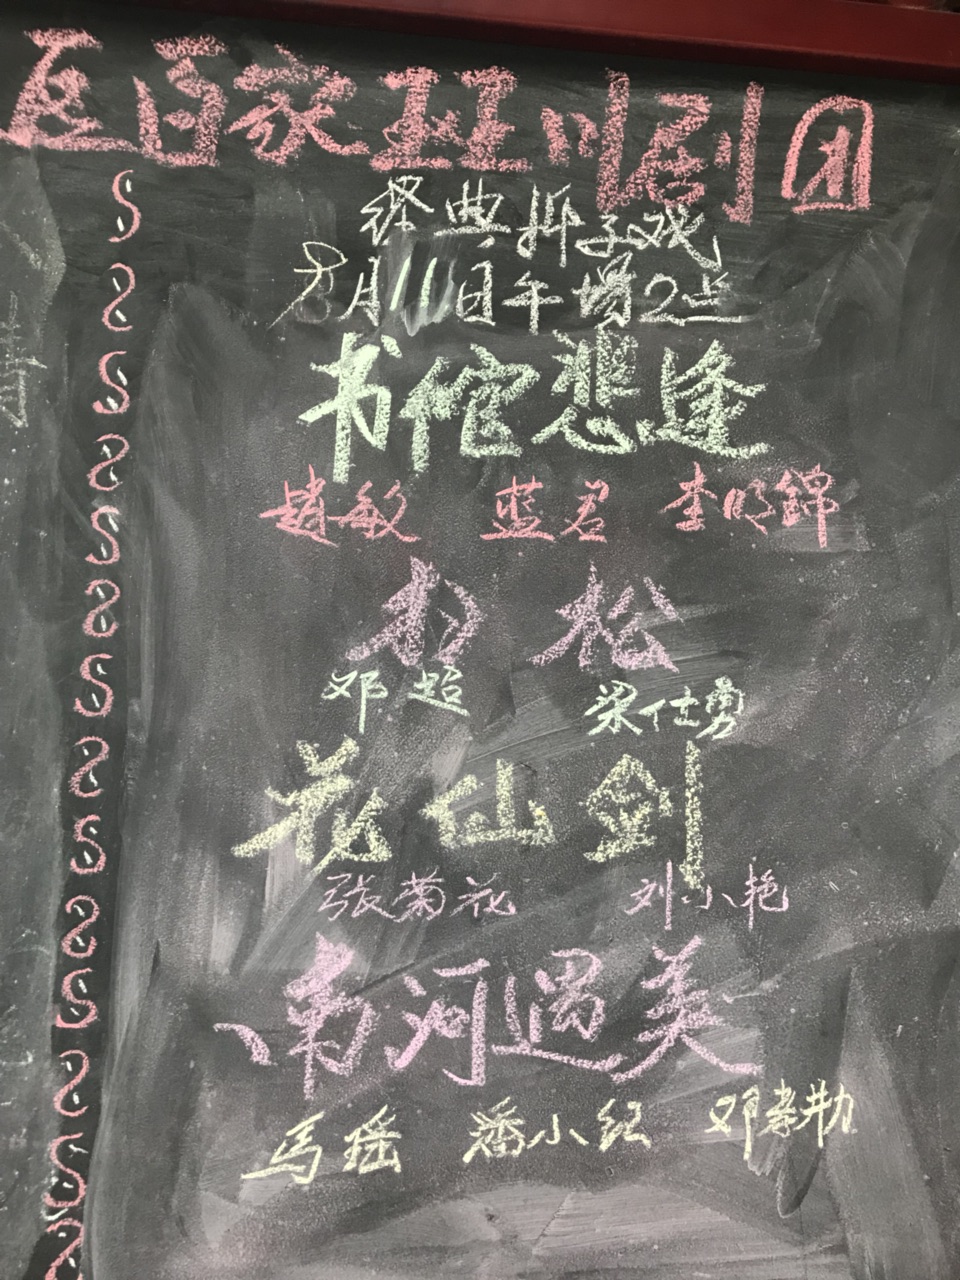 百家班川剧团
经典折子戏
8月11日午場2点
书馆悲逢
趙敏 蓝君 李明錦
扫松
邓超 梁仕勇
花仙剑
张菊花 刘小艳
南河遇美
马瑶 潘小红 邓孝勛